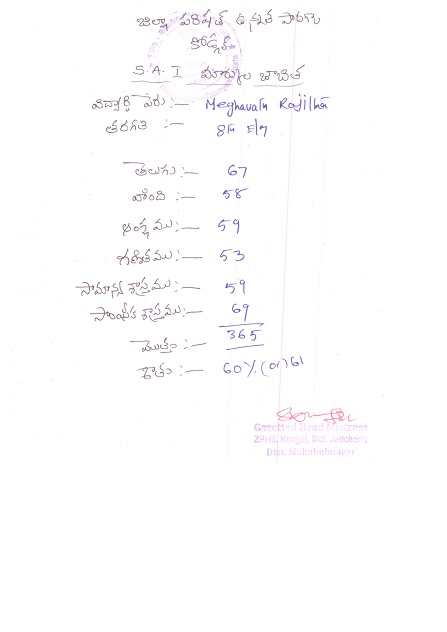 జిల్లా పరిషత్ ఉన్నత పాఠశాల
కోడ్గల్
S.A. I మార్కుల జాబిత
విద్యార్థి పేరు :- Meghavath Rajitha
తరగతి :- 8th E/M
తెలుగు :- 67
హింది :- 58
ఆంగ్లము :- 59
గణితము :- 53
సామాన్య శాస్త్రము :- 59
సాంఘీక శాస్త్రము :- 69
మొత్తం :- 365
శాతం :- 60% (or) 61
Gazetted Head Mistress
ZPHS, Kodgal, Mdl. Jadcherla
Dist. Mahabubnagar